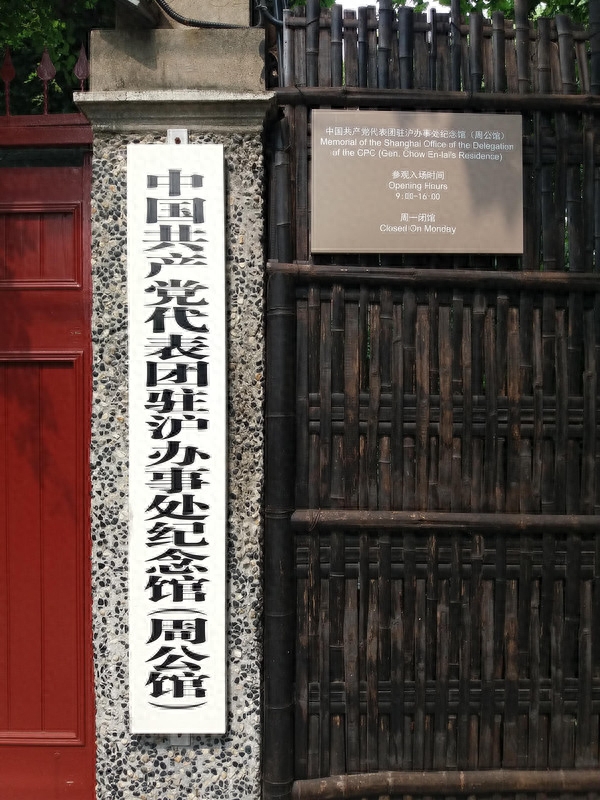 中国共产党代表团驻沪办事处纪念馆(周公馆)
中国共产党代表团驻沪办事处纪念馆（周公馆）
Memorial of the Shanghai Office of the Delegation
of the CPC (Gen. Chow En-lai's Residence)
参观入场时间
Opening Hours
9:00-16:00
周一闭馆
Closed On Monday